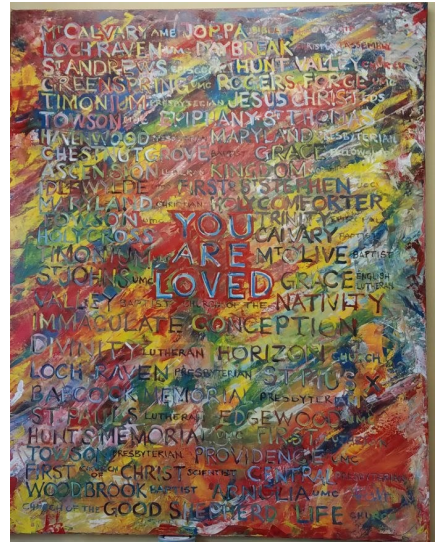 MT CALVARY AME JOPPA
LOCH RAVEN UMC DAYBREAK
ST ANDREW'S HUNT VALLEY CHURCH
GREENSPRING UMC RODGERS FORGE UMC
TIMONIUM PRESBYTERIAN JESUS CHRIST LDS
TOWSON UMC EPIPHANY ST THOMAS
HAVENWOOD MARYLAND PRESBYTERIAN
CHESTNUT GROVE GRACE FELLOWSHIP
ASCENSION LUTHERAN KINGDOM
IDLEWYLDE FIRST ST STEPHEN
MARYLAND CHRISTIAN HOLY COMFORTER
TOWSON YOU TRINITY
HOLY CROSS CALVARY BAPTIST
TIMONIUM UMC ARE MT OLIVE BAPTIST
ST JOHNS UMC LOVED GRACE ENGLISH LUTHERAN
VALLEY BAPTIST CHURCH OF THE NATIVITY
IMMACULATE CONCEPTION
DIVINITY LUTHERAN HORIZON CHURCH
LOCH RAVEN PRESBYTERIAN ST PIUS X
BABCOCK MEMORIAL PRESBYTERIAN
ST PAULS LUTHERAN EDGEWOOD UMC
HUNTS MEMORIAL UMC FIRST LUTHERAN
TOWSON PRESBYTERIAN PROVIDENCE UMC
FIRST CHURCH OF CHRIST SCIENTIST CENTRAL PRESBYTERIAN
WOODBROOK BAPTIST UMC
CHURCH OF THE GOOD SHEPHERD LIFE CHURCH